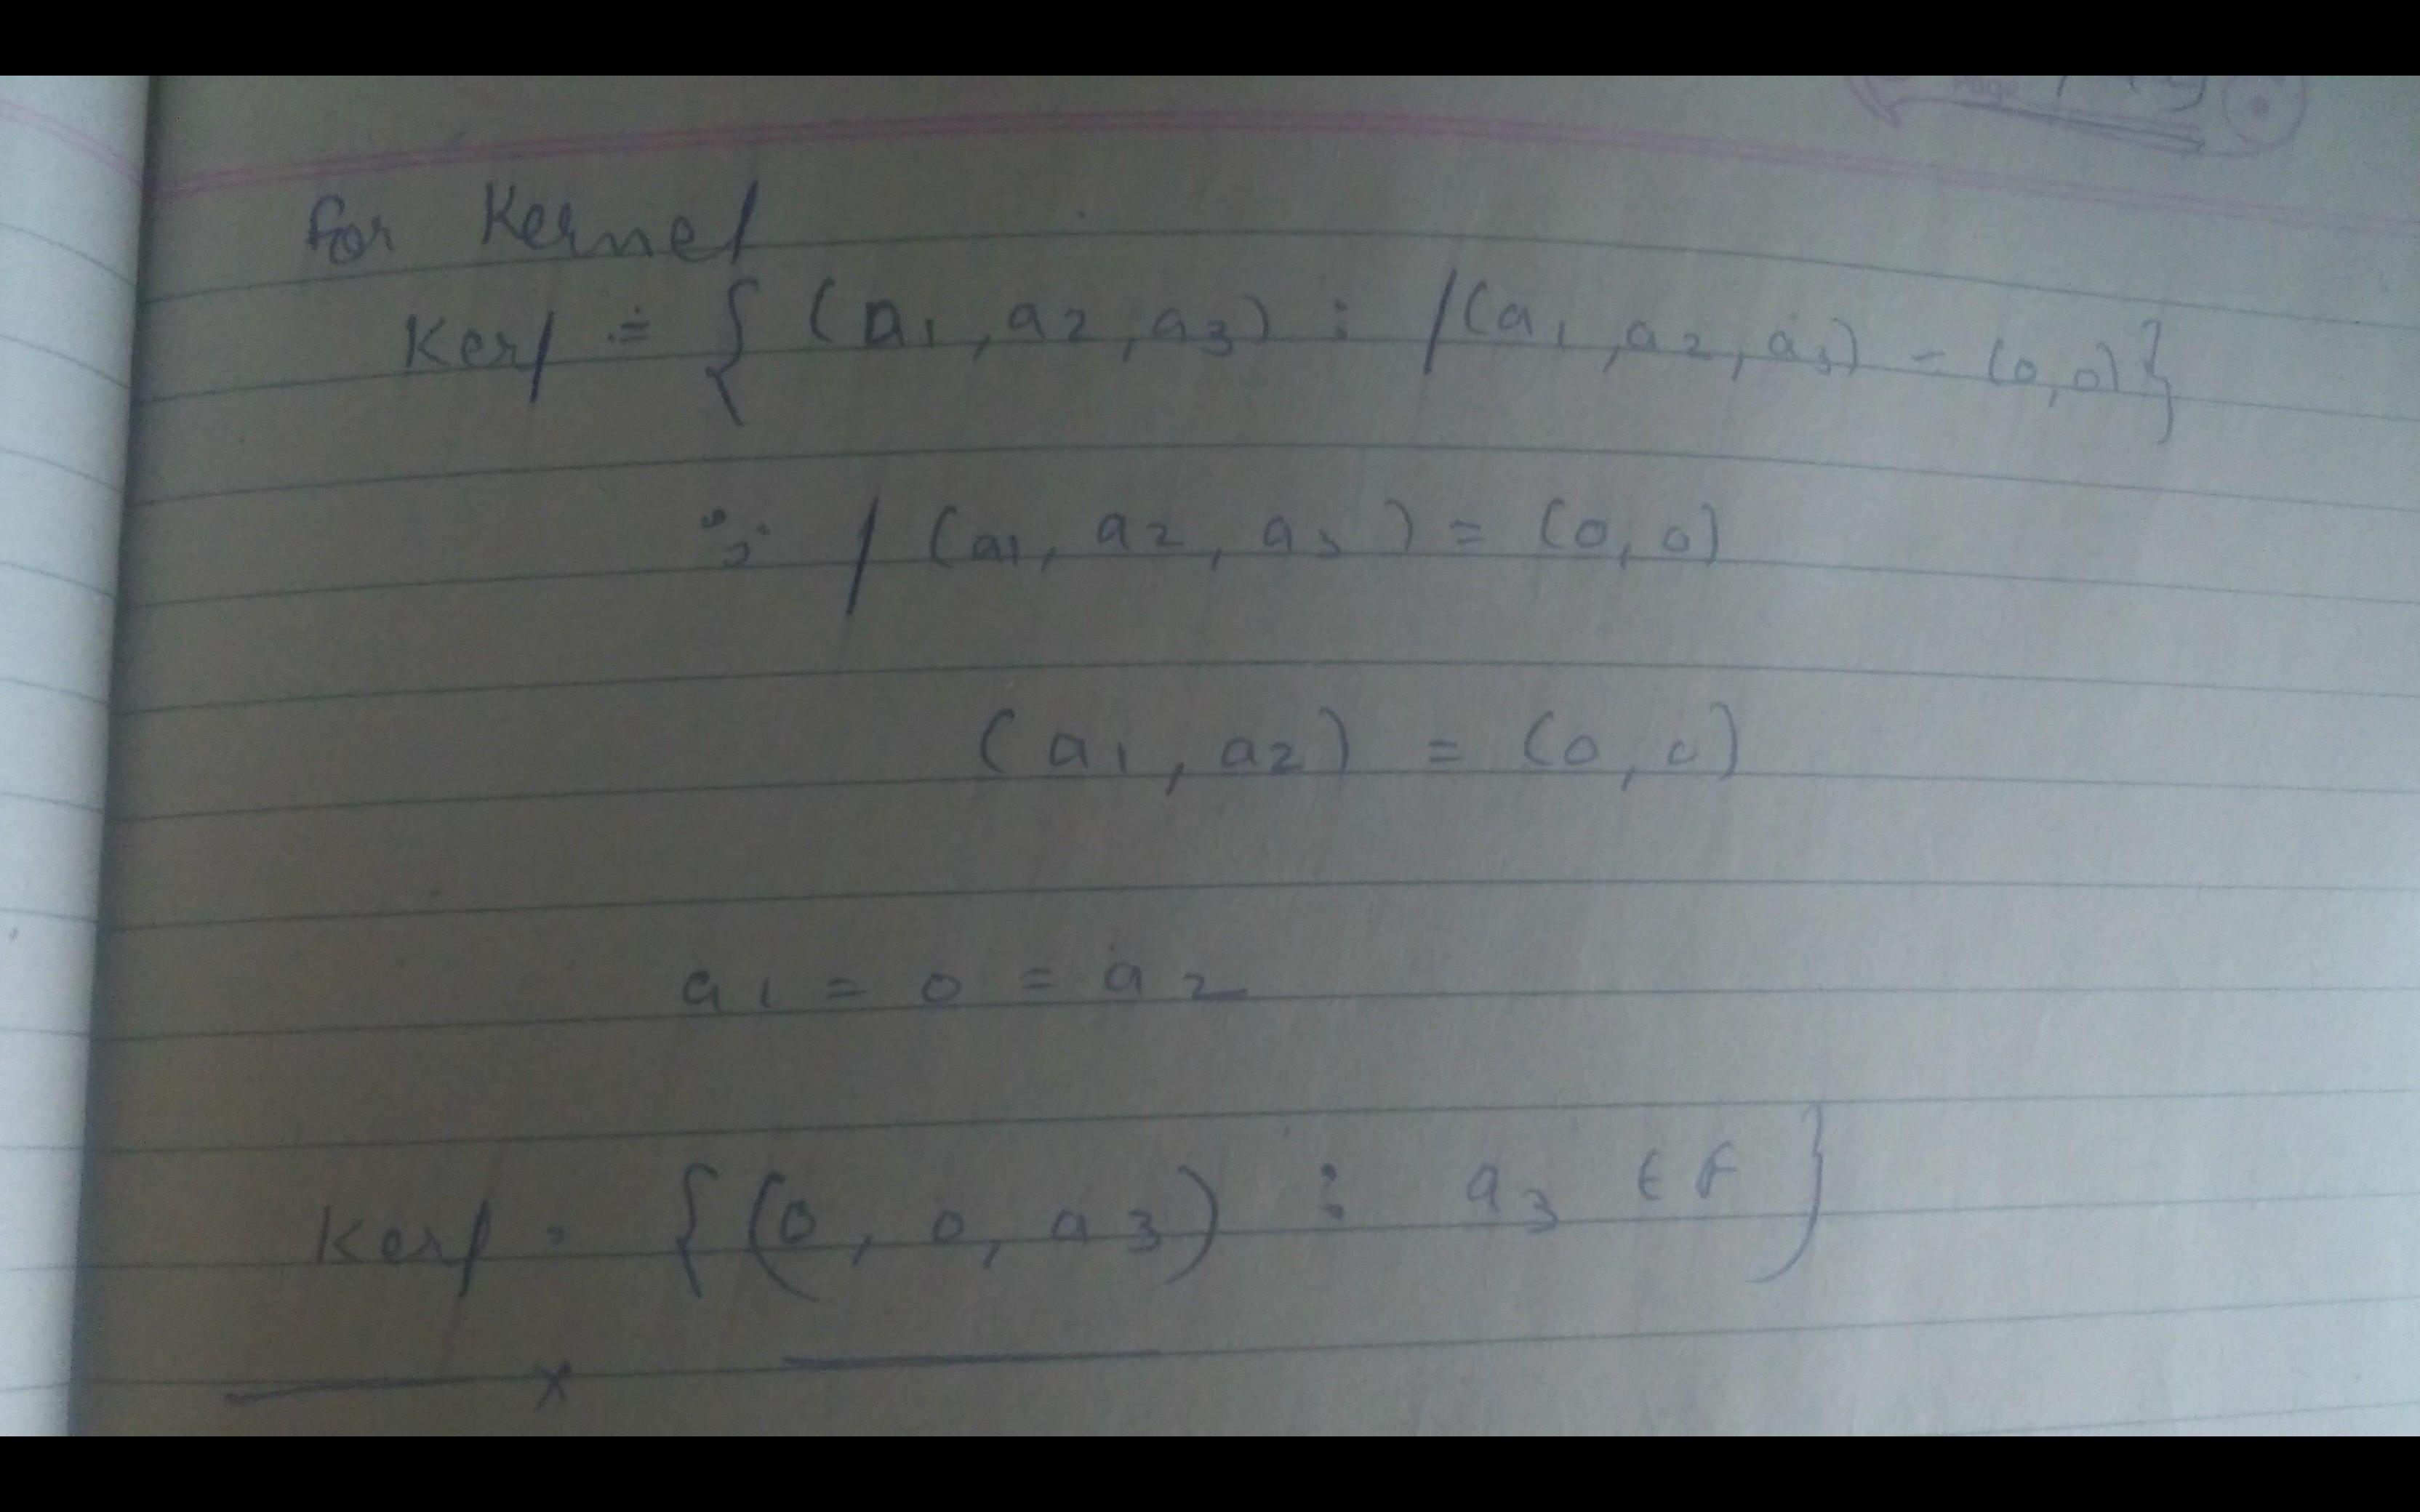 for Kernel
Kerf = { (a1, a2, a3) : f(a1, a2, a3) = (0, 0) }
∵ f (a1, a2, a3) = (0, 0)
(a1, a2) = (0, 0)
a1 = 0 = a2
Kerf = { (0, 0, a3) : a3 ∈ F }
x